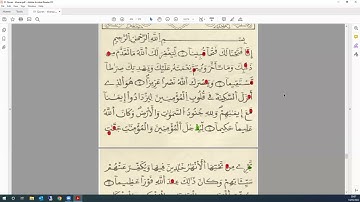 بِسْمِ اللَّهِ الرَّحْمَٰنِ الرَّحِيمِ
إِنَّا فَتَحْنَا لَكَ فَتْحًا مُّبِينًا ۝ لِّيَغْفِرَ لَكَ اللَّهُ مَا تَقَدَّمَ مِن
ذَنبِكَ وَمَا تَأَخَّرَ وَيُتِمَّ نِعْمَتَهُ عَلَيْكَ وَيَهْدِيَكَ صِرَاطًا
مُّسْتَقِيمًا ۝ وَيَنصُرَكَ اللَّهُ نَصْرًا عَزِيزًا ۝ هُوَ الَّذِي
أَنزَلَ السَّكِينَةَ فِي قُلُوبِ الْمُؤْمِنِينَ لِيَزْدَادُوا إِيمَٰنًا
مَّعَ إِيمَٰنِهِمْ وَلِلَّهِ جُنُودُ السَّمَٰوَٰتِ وَالْأَرْضِ وَكَانَ اللَّهُ
عَلِيمًا حَكِيمًا ۝ لِّيُدْخِلَ الْمُؤْمِنِينَ وَالْمُؤْمِنَٰتِ جَنَّٰتٍ
تَجْرِي مِن تَحْتِهَا الْأَنْهَٰرُ خَٰلِدِينَ فِيهَا وَيُكَفِّرَ عَنْهُمْ
سَيِّئَاتِهِمْ وَكَانَ ذَٰلِكَ عِندَ اللَّهِ فَوْزًا عَظِيمًا